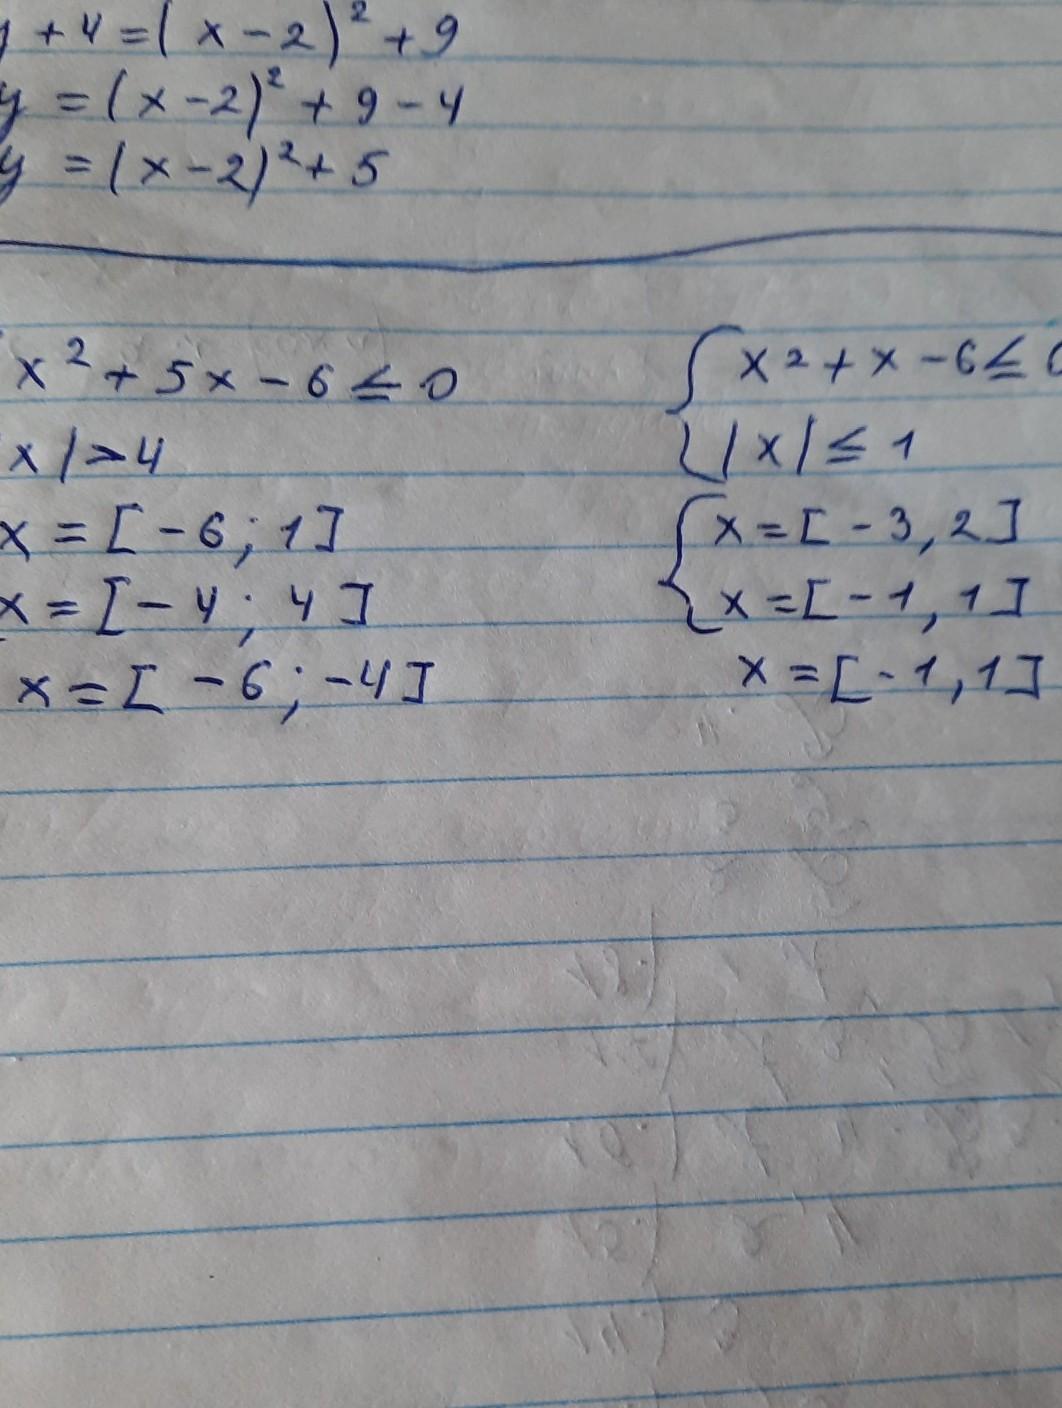 y + 4 = ( x - 2 )² + 9
y = ( x - 2 )² + 9 - 4
y = ( x - 2 )² + 5
x² + 5x - 6 ≤ 0
x | > 4
x = [ - 6 ; 1 ]
x = [ - 4 ; 4 ]
x = [ - 6 ; - 4 ]
{ x² + x - 6 ≤ 0
| x | ≤ 1
{ x = [ - 3 , 2 ]
x = [ - 1 , 1 ]
x = [ - 1 , 1 ]